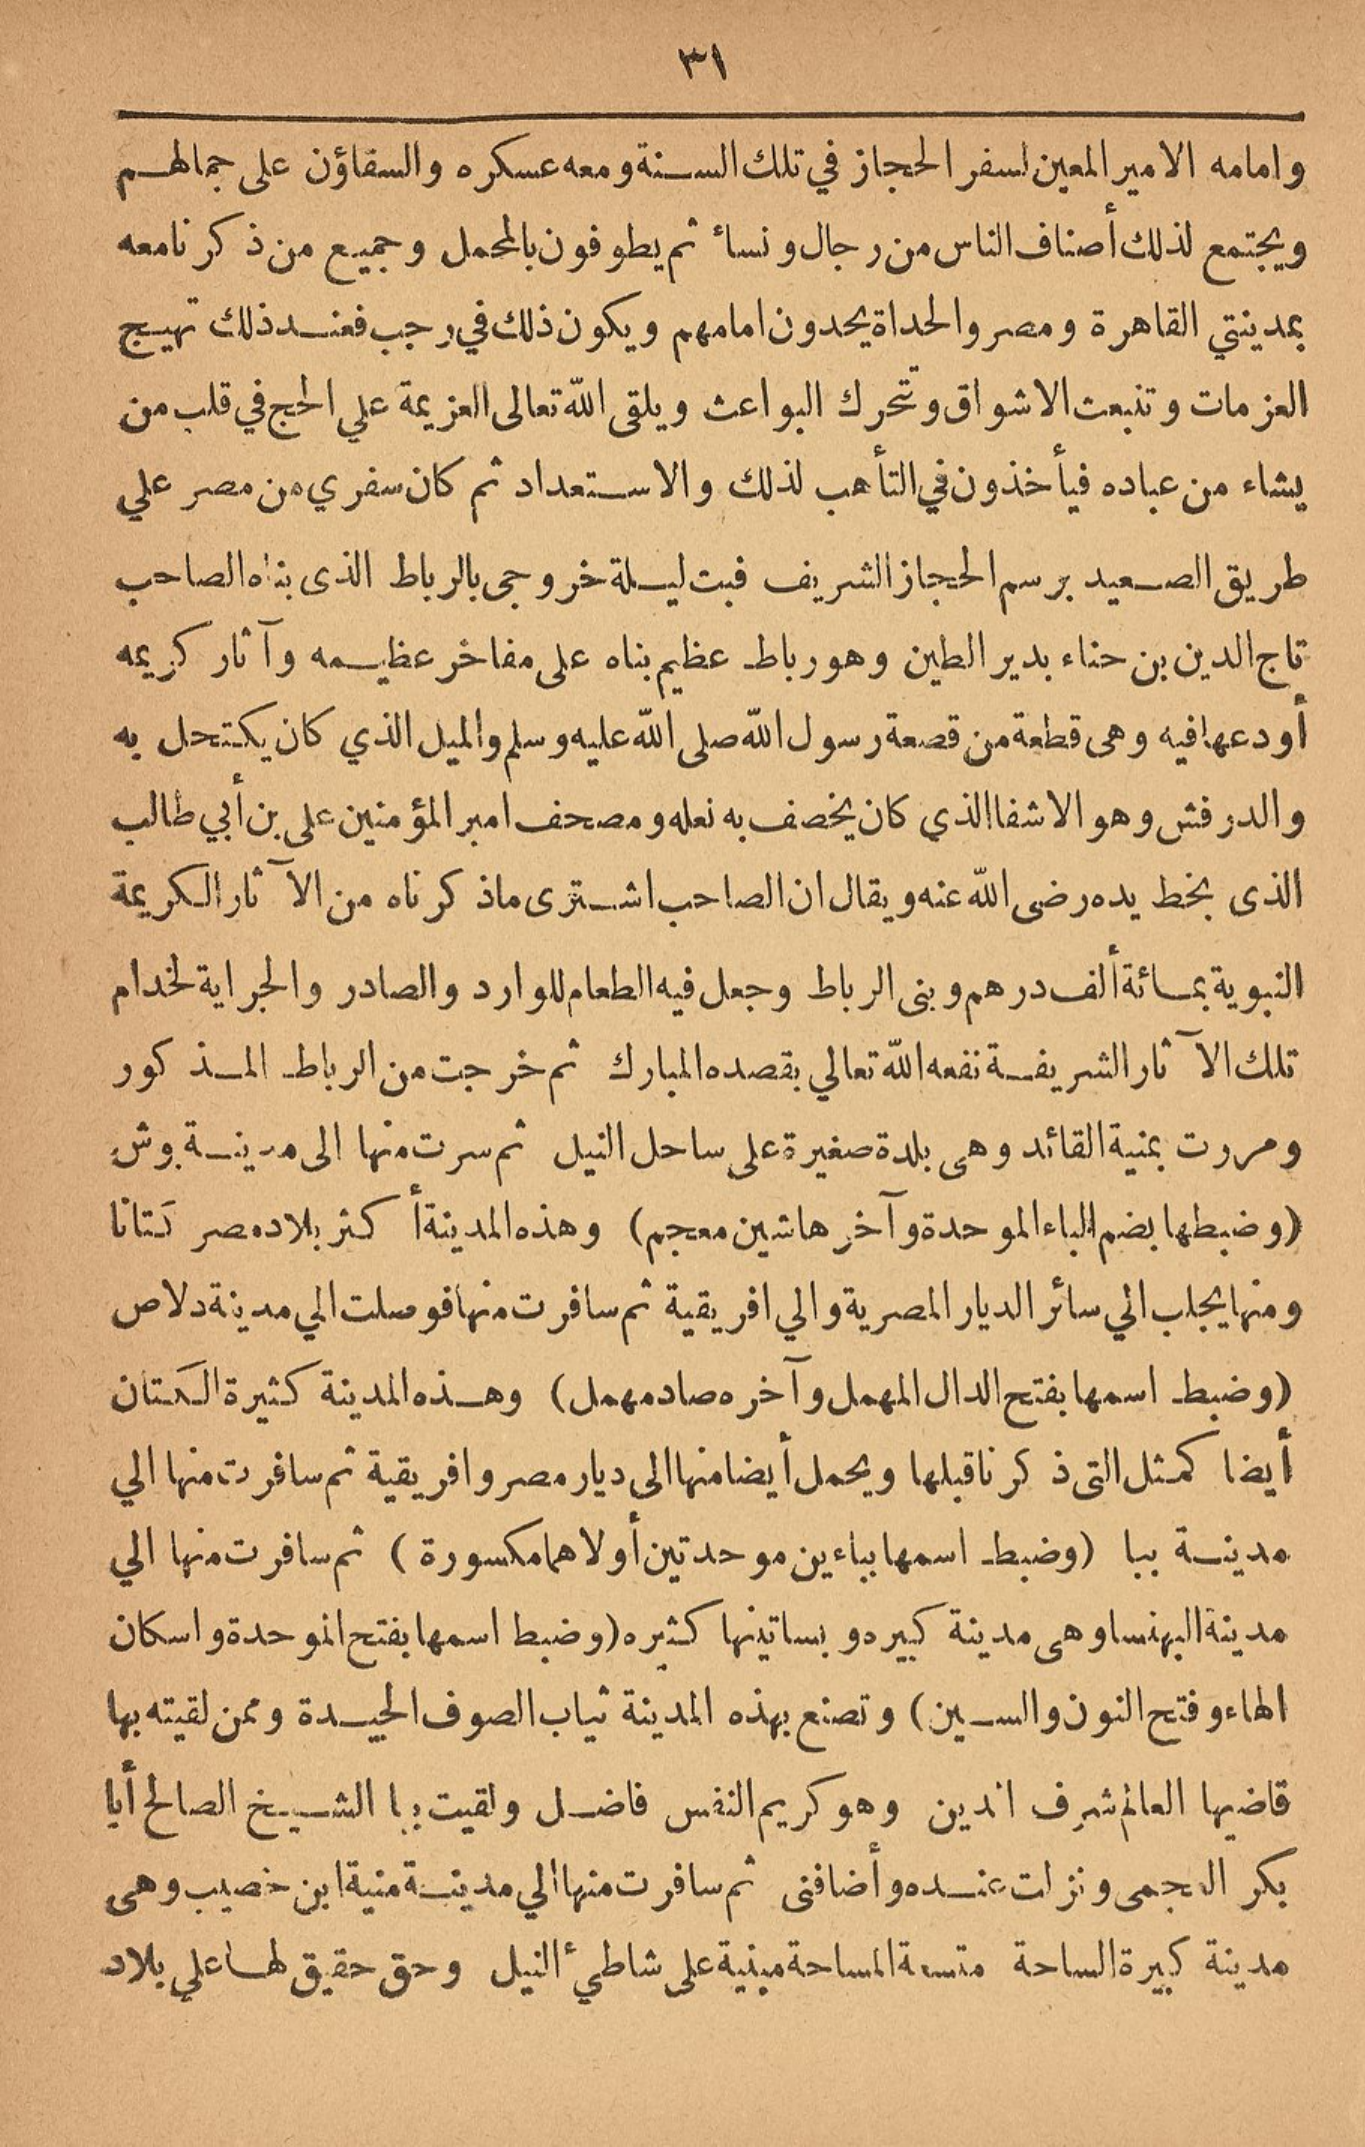 ٣١
وامامه الامير المعين لسفر الحجاز في تلك السنة ومعه عسكره والسقاؤن على جمالهم
ويجتمع لذلك أصناف الناس من رجال ونساء ثم يطوفون بالمحمل وجميع من ذكرنا معه
بمدينتي القاهرة ومصر والحداة يحدون امامهم ويكون ذلك في رجب فعند ذلك تهيج
العزمات وتنبعث الاشواق وتتحرك البواعث ويلقى الله تعالى العزيمة علي الحج في قلب من
يشاء من عباده فيأخذون في التأهب لذلك والاستعداد ثم كان سفري من مصر علي
طريق الصعيد برسم الحجاز الشريف فبت ليلة خروجى بالرباط الذى بناه الصاحب
تاج الدين بن حناء بدير الطين وهو رباط عظيم بناه على مفاخر عظيمه وآثار كريمه
أودعها فيه وهى قطعة من قصعة رسول الله صلى الله عليه وسلم والميل الذي كان يكتحل به
والدرفش وهو الاشفا الذي كان يخصف به نعله ومصحف امير المؤمنين على بن أبي طالب
الذى بخط يده رضى الله عنه ويقال ان الصاحب اشترى ماذكرناه من الآثار الكريمة
النبوية بمائة ألف درهم وبنى الرباط وجعل فيه الطعام للوارد والصادر والجراية لخدام
تلك الآثار الشريفة نفعه الله تعالي بقصده المبارك ثم خرجت من الرباط المذكور
ومررت بمنية القائد وهى بلدة صغيرة على ساحل النيل ثم سرت منها الى مدينة بوش
(وضبطها بضم الباء الموحدة وآخرها شين معجم) وهذه المدينة أكثر بلاد مصر كتانا
ومنها يجلب الي سائر الديار المصرية والي افريقية ثم سافرت منها فوصلت الي مدينة دلاص
(وضبط اسمها بفتح الدال المهمل وآخره صاد مهمل) وهذه المدينة كثيرة الكتان
أيضا كمثل التى ذكرنا قبلها ويحمل أيضا منها الى ديار مصر وافريقية ثم سافرت منها الي
مدينة ببا (وضبط اسمها بباءين موحدتين أولاهما مكسورة) ثم سافرت منها الي
مدينة البهنسا وهى مدينة كبيره وبساتينها كثيره (وضبط اسمها بفتح الموحدة واسكان
الهاء وفتح النون والسين) وتصنع بهذه المدينة ثياب الصوف الجيدة وممن لقيته بها
قاضيها العالم شرف الدين وهو كريم النفس فاضل ولقيت بها الشيخ الصالح أبا
بكر العجمى ونزلت عنده وأضافنى ثم سافرت منها الي مدينة منية ابن خصيب وهى
مدينة كبيرة الساحة متسعة المساحة مبنية على شاطئ النيل وحق حقيق لها علي بلاد